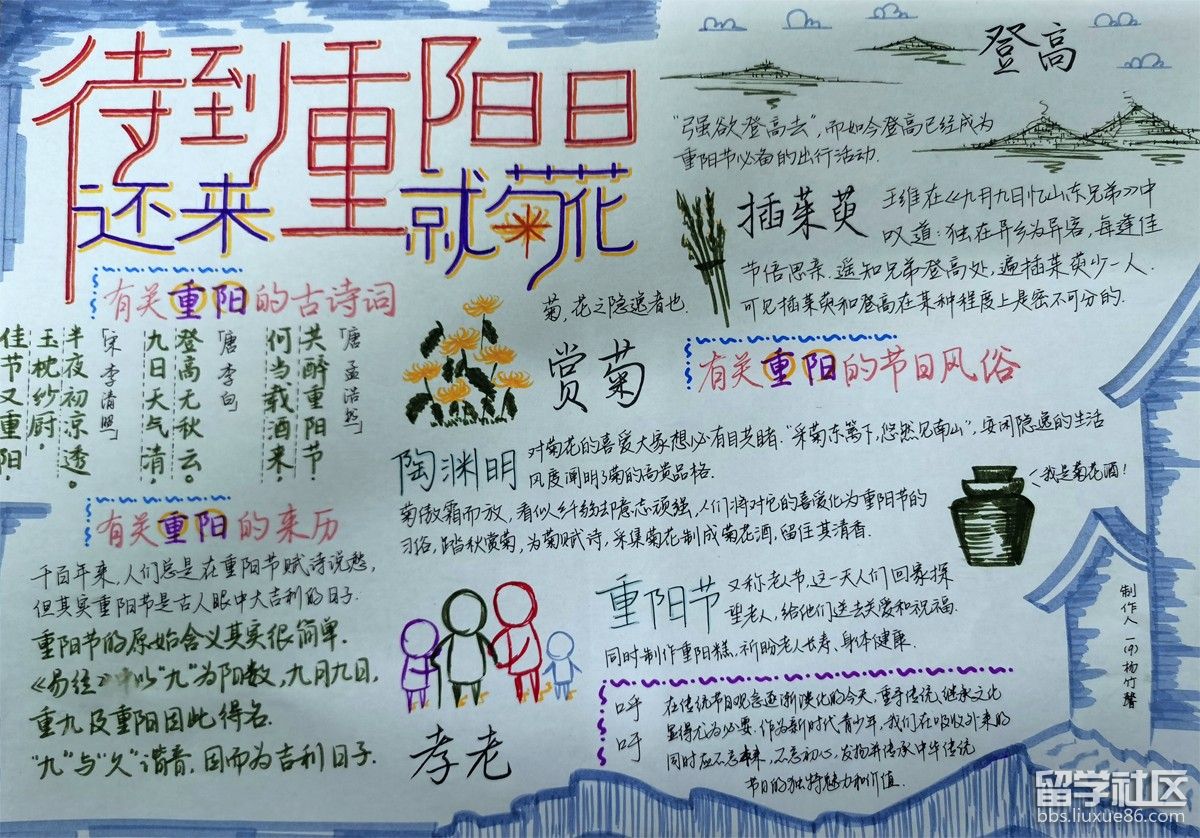 待到重阳日
还来就菊花
登高
"强欲登高去",而如今登高已经成为
重阳节必备的出行活动.
插茱萸
王维在《九月九日忆山东兄弟》中
叹道:独在异乡为异客,每逢佳
节倍思亲.遥知兄弟登高处,遍插茱萸少一人.
可见插茱萸和登高在某种程度上是密不可分的.
有关重阳的古诗词
「唐 孟浩然」
共醉重阳节。
何当载酒来
「唐 李白」
登高无秋云。
九日天气清
「宋 李清照」
半夜初凉透。
玉枕纱厨.
佳节又重阳
菊,花之隐逸者也.
赏菊
有关重阳的节日风俗
陶渊明
对菊花的喜爱大家想必有目共睹."采菊东篱下,悠然见南山",安闲隐逸的生活
风度阐明了菊的高贵品格.
菊傲霜而放,看似纤弱却意志顽强,人们将对它的喜爱化为重阳节的
习俗,踏秋赏菊,为菊赋诗,采集菊花制成菊花酒,留住其清香.
我是菊花酒!
有关重阳的来历
千百年来,人们总是在重阳节赋诗说愁,
但其实重阳节是古人眼中大吉利的日子.
重阳节的原始含义其实很简单.
《易经》中以"九"为阳数,九月九日,
重九及重阳因此得名.
"九"与"久"谐音,因而为吉利日子.
孝老
重阳节
又称老人节,这一天人们回家探
望老人,给他们送去关爱和祝福.
同时制作重阳糕,祈盼老人长寿、身体健康.
呼吁
在传统节日观念逐渐淡化的今天,重手传统、继承文化
显得尤为必要.作为新时代青少年,我们在吸收外来的
同时应不忘本来,不忘初心,发扬并传承中华传统
节日的独特魅力和价值.
制作人 一(9) 杨竹馨
留学社区
bbs.liuxue86.com